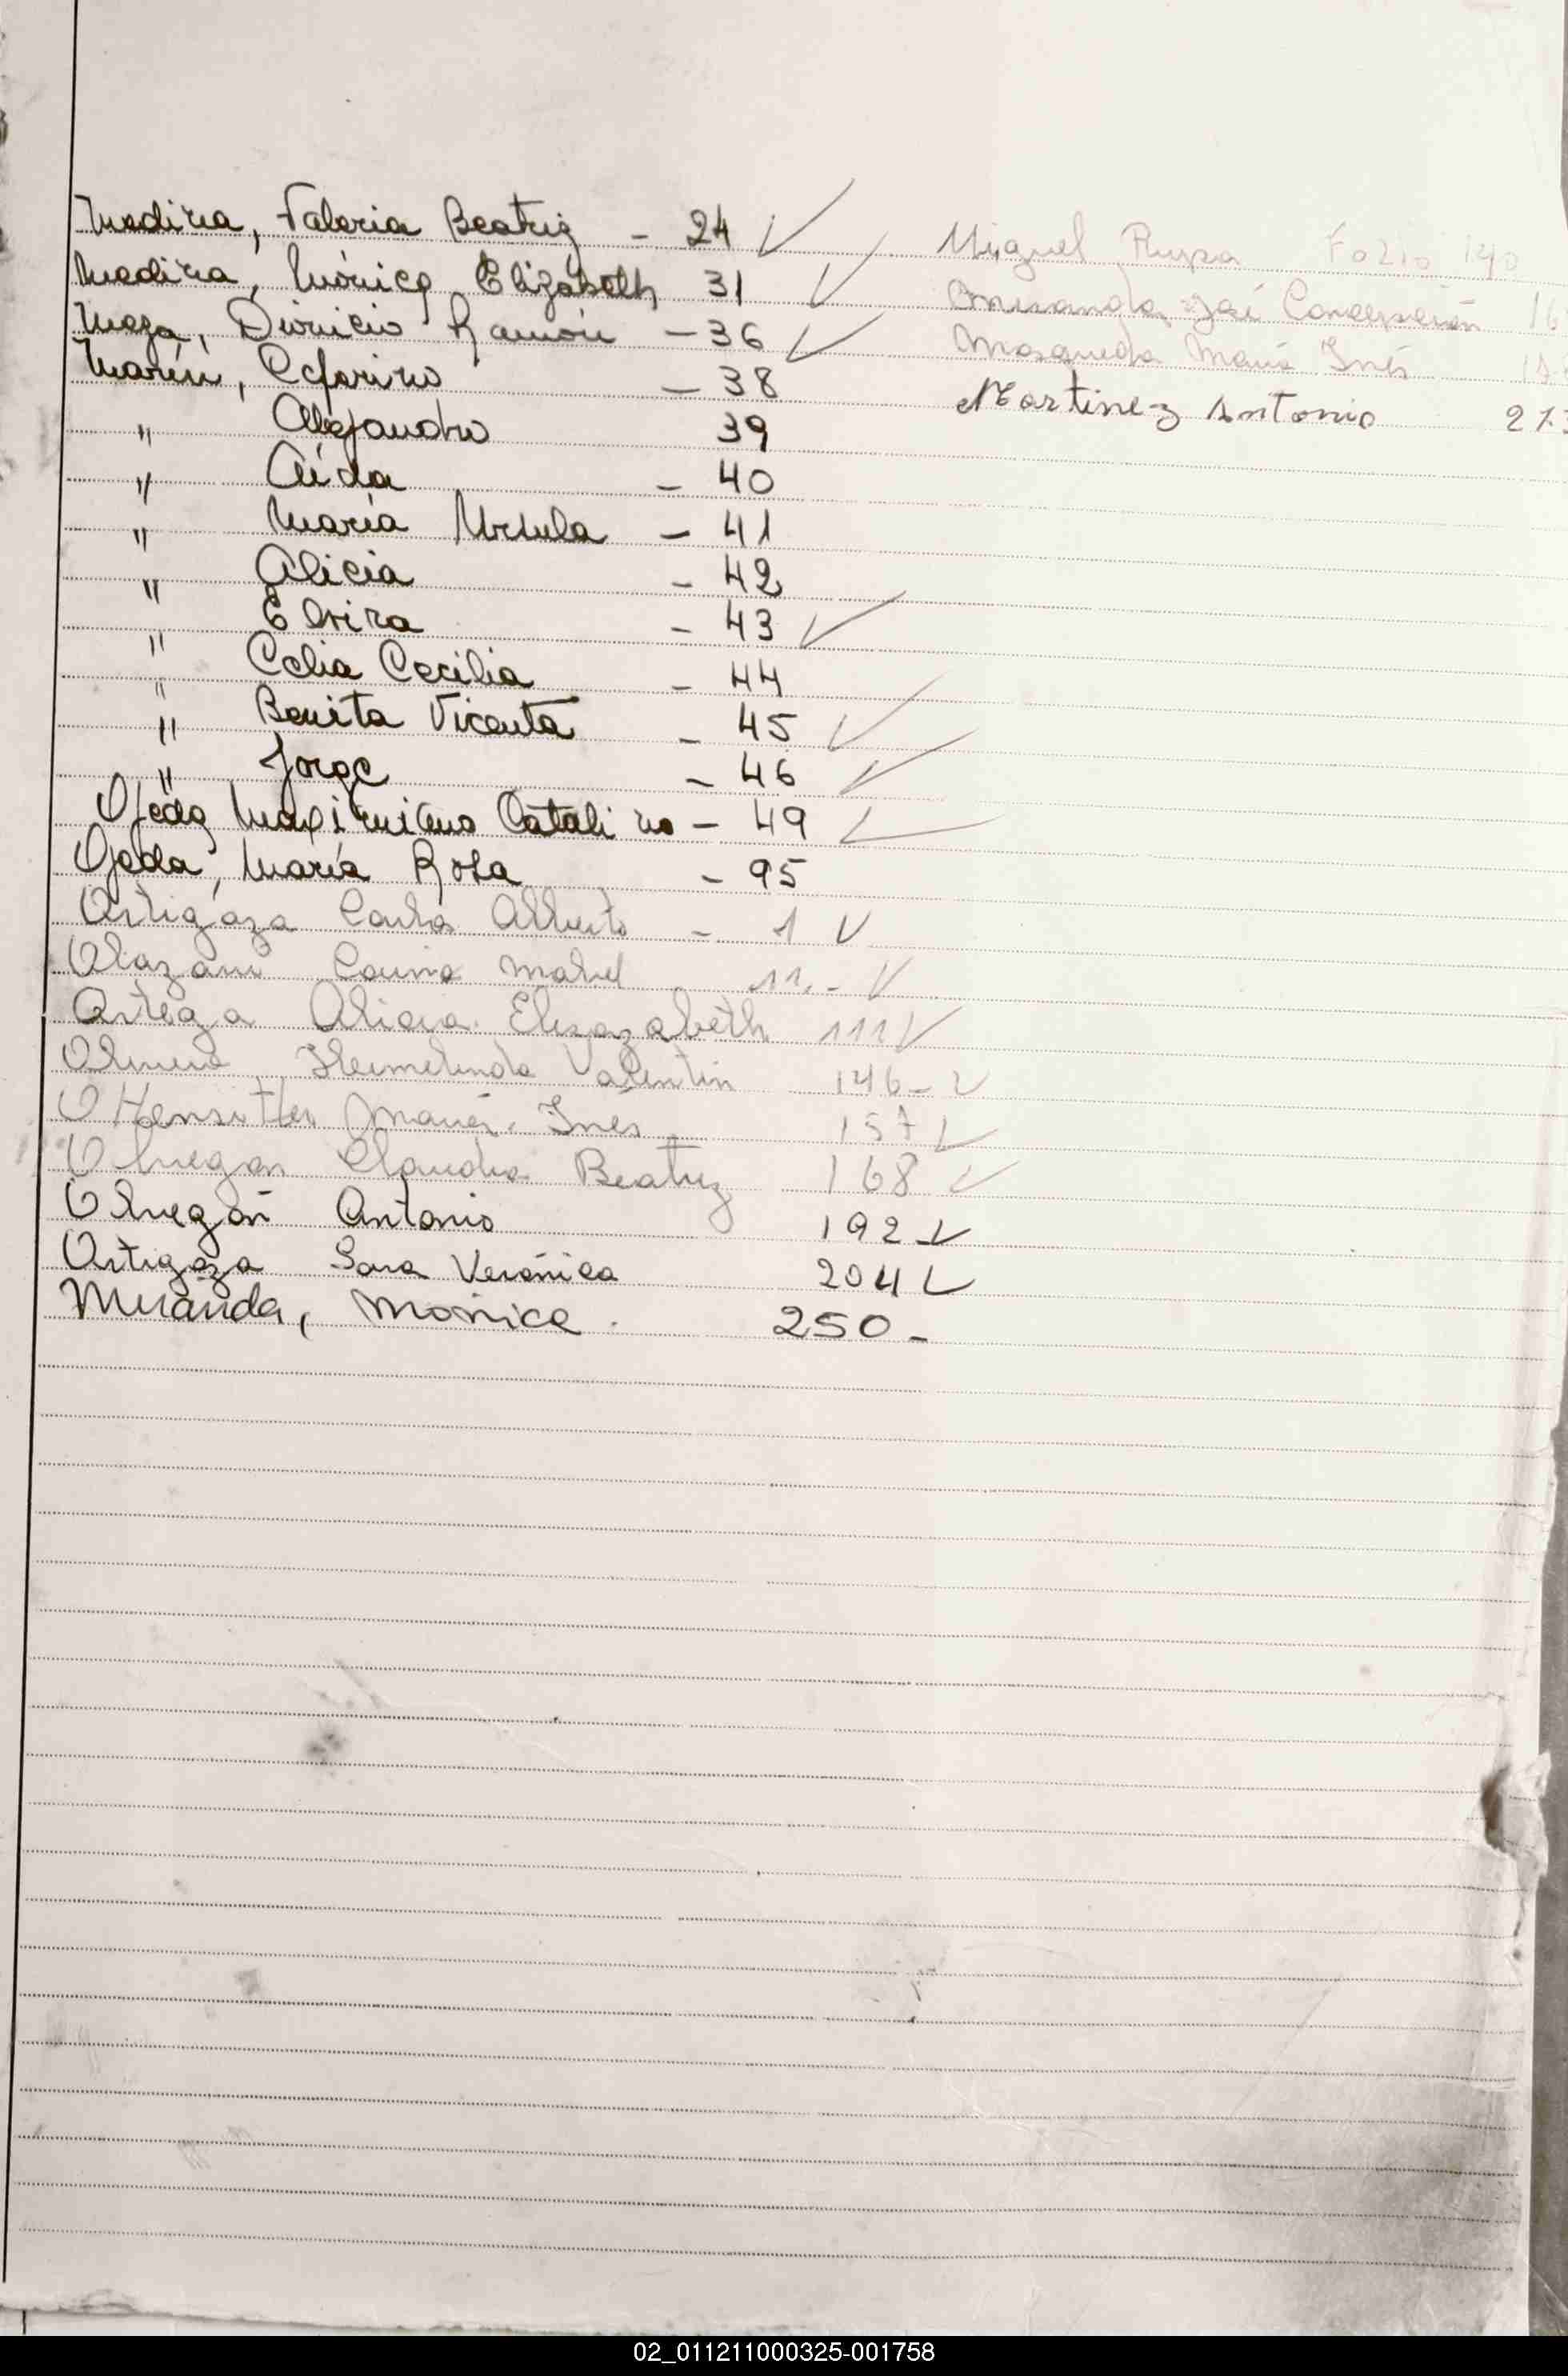 Medina, Valeria Beatriz - 24 ✓
Medina, Mónica Elizabeth 31 ✓
Meza, Dionicio Ramón - 36 ✓
Marín, Ceferino - 38
" Alejandro 39
" Aída - 40
" María Ursula - 41
" Alicia - 42
" Elvira - 43 ✓
" Celia Cecilia - 44
" Benita Vicenta - 45 ✓
" Jorge - 46 ✓
Ojeda Maximiliano Catalino - 49 ✓
Ojeda, María Rosa - 95
Ortigoza Carlos Alberto - 1 ✓
Olazarri Mabel 11.- ✓
Ortega Alicia Elisazabeth 111 ✓
Hermelinda Valentin 146- ✓
María Inés 157 ✓
Obregon Claudia Beatriz 168 ✓
Obregón Antonio 192 ✓
Ortigoza Sara Verónica 204 ✓
Miranda, Monica. 250-
Miguel Folio 140
Miranda José Concepción 16
Mosqueda María Inés
Martinez Antonio 273
02_011211000325-001758